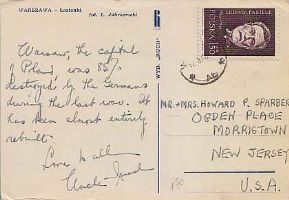 WARSZAWA — Łazienki
fot. T. Zabrzewski
Warsaw, the capital
of Poland, was 85%
destroyed by the Germans
during the last war. It
has been almost entirely
rebuilt.
Love to all
Uncle
WYD. „RUCH”
LUDWIK PASTEUR
POLSKA 1.50
MR. + MRS. HOWARD P. SPARBER
OGDEN PLACE
MORRISTOWN
NEW JERSEY
U.S.A.
150